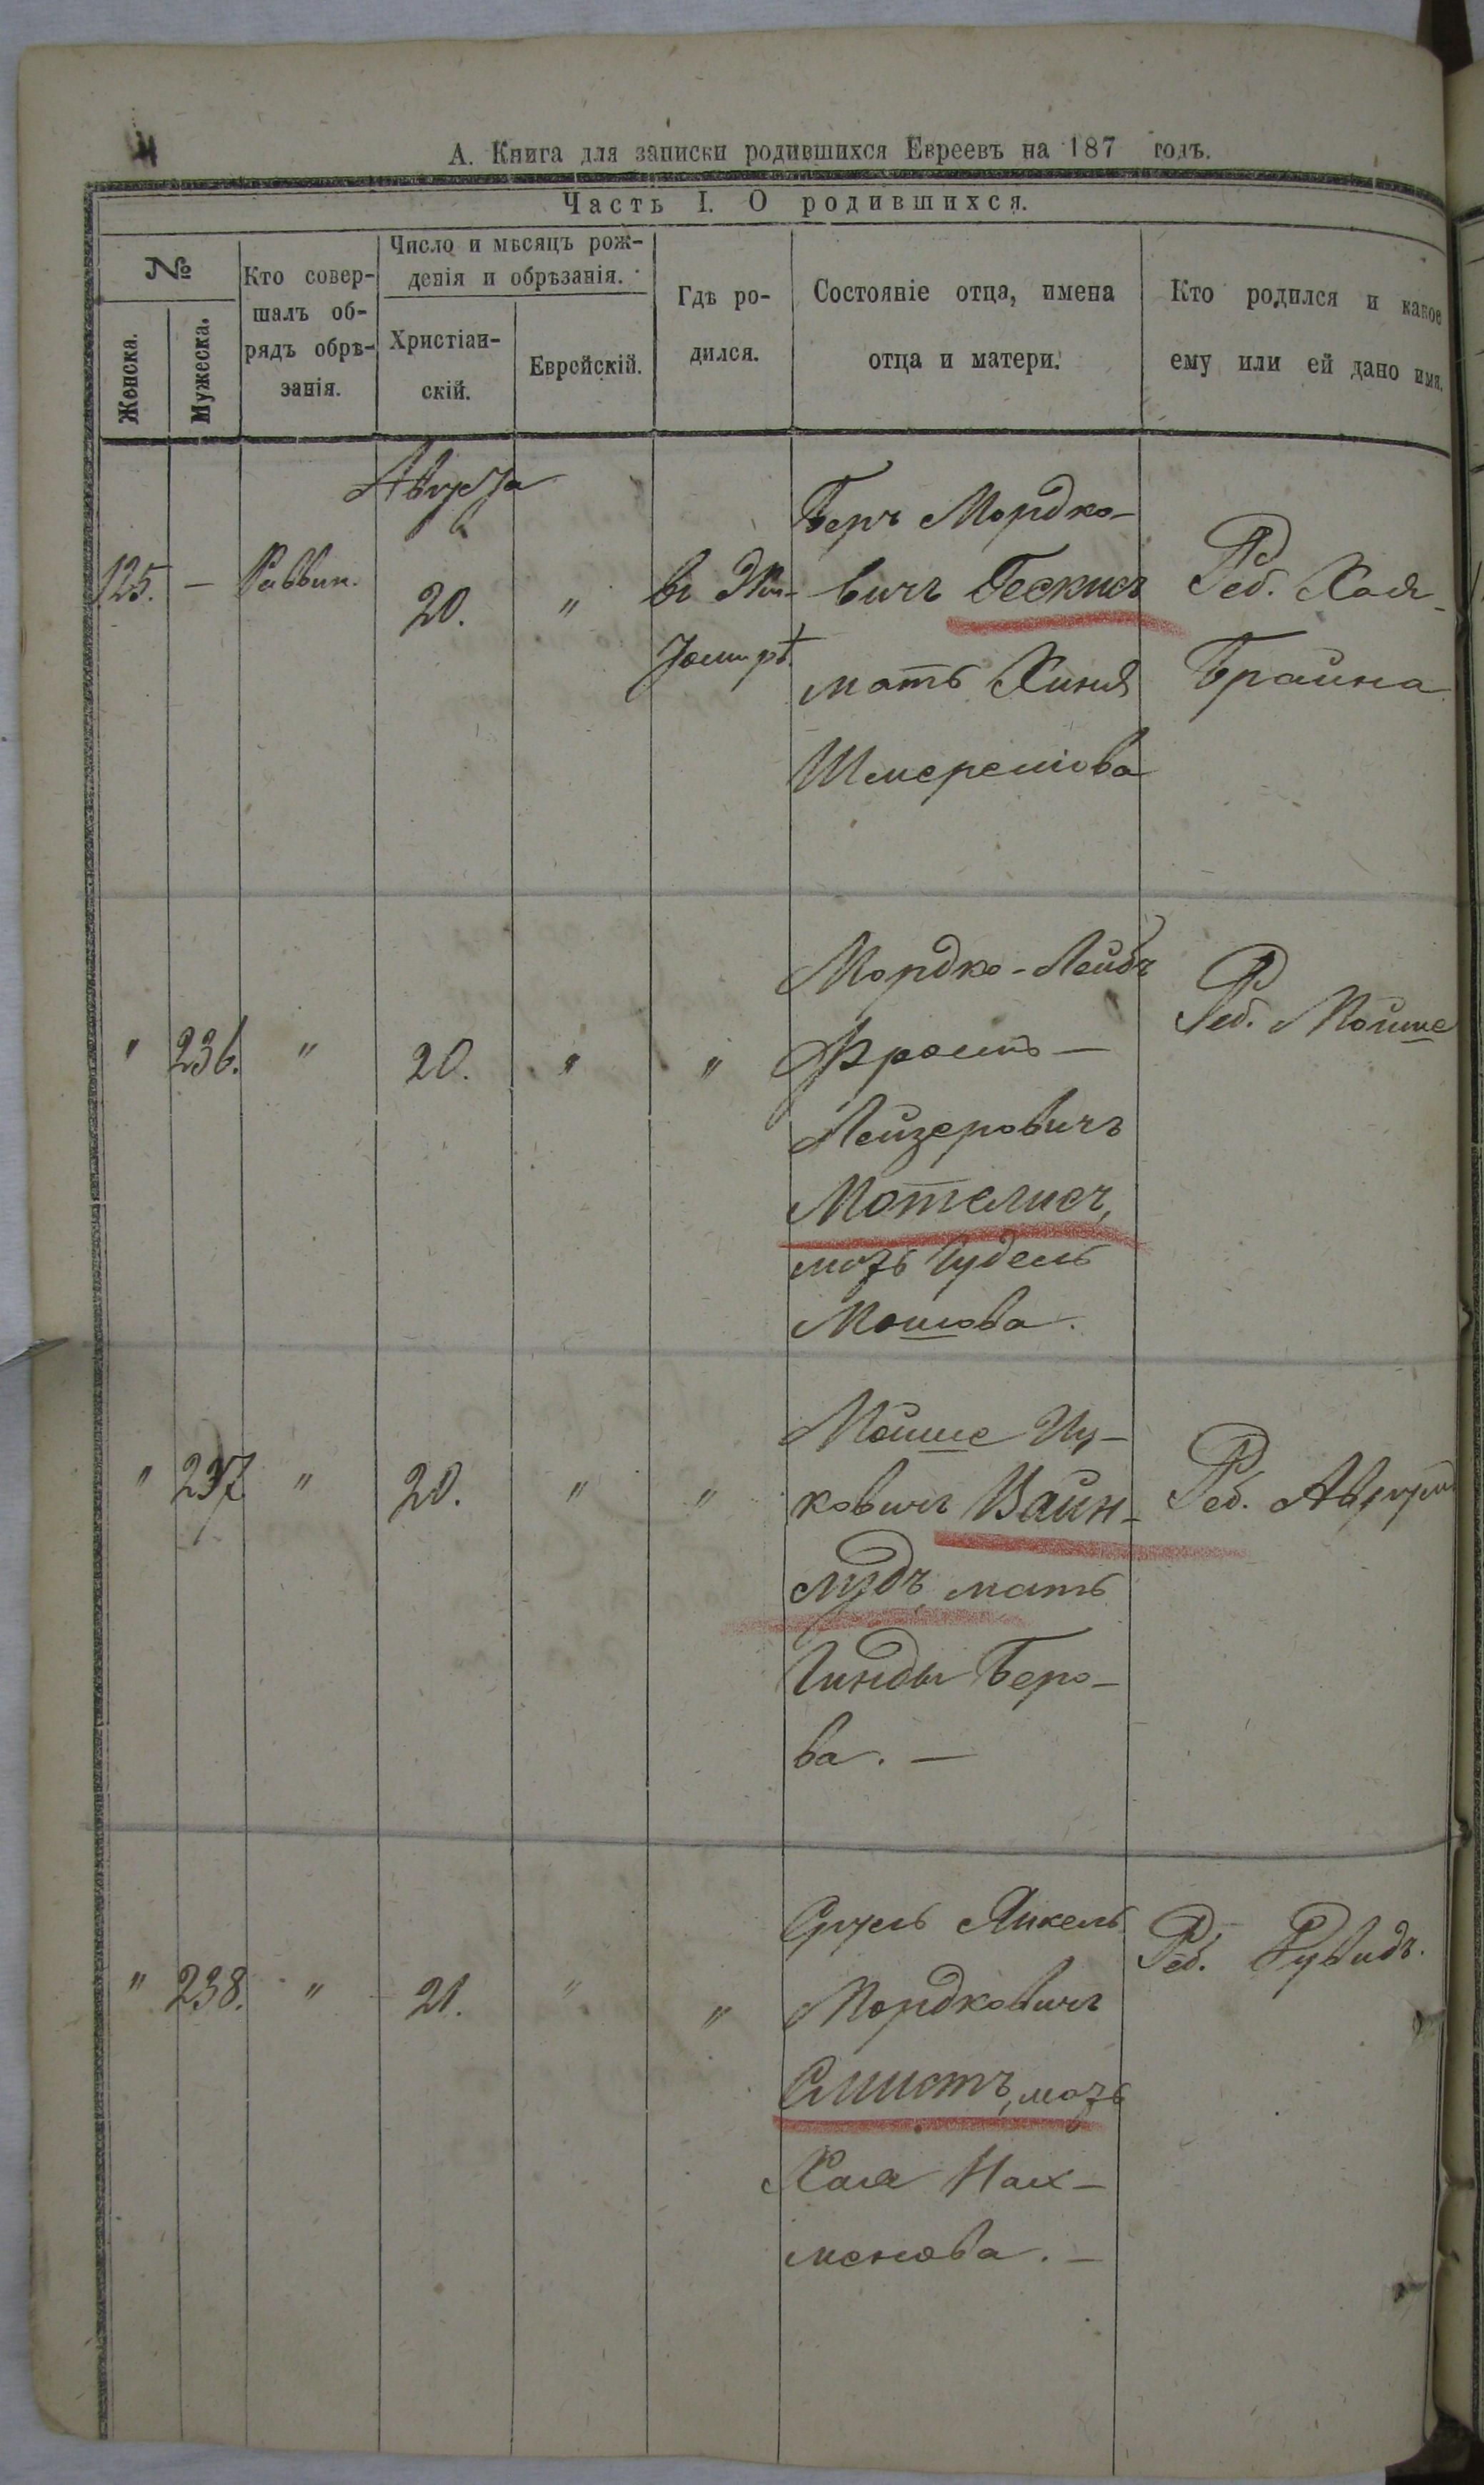 А. Книга для записки родившихся Евреевъ на 187 годъ.
Часть I. О родившихся.
№
Женска.
Мужеска.
Кто совер-
шалъ об-
рядъ обрѣ-
занія.
Число и мѣсяцъ рож-
денія и обрѣзанія.
Христіан-
скій.
Еврейскій.
Гдѣ ро-
дился.
Состояніе отца, имена
отца и матери.
Кто родился и какое
ему или ей дано имя.
Августа
125. — Раввин. 20. " въ Жи-
томирѣ
Беръ Мордко-
вичъ Гескисъ
мать Хиня
Шмерешова
Реб. Хая-
Браина
" 236. " 20. " "
Мордко-Лейбъ
Фроимъ —
Лейзеровичъ
Мотелисъ,
мать Гудель
Мошова.
Реб. Мойше
" 237 " 20. " "
Мойше Иц-
ковичъ Вайн-
лудъ, мать
Гинды Беро-
ва. —
Реб.
" 238. " 21. " "
Сруль Янкель
Мордковичъ
Слистъ, мать
Хая Нах-
менова. —
Реб. Рувидъ.